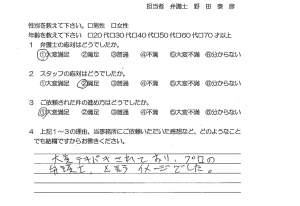 担当者 弁護士 野田泰彦
性別を教えて下さい。 □男性 □女性
年齢を教えて下さい □20代□30代□40代□50代□60代□70才以上
1 弁護士の応対はどうでしたか。
①大変満足 ②満足 ③普通 ④不満 ⑤大変不満 ⑥分からない
2 スタッフの応対はどうでしたか。
①大変満足 ②満足 ③普通 ④不満 ⑤大変不満 ⑥分からない
3 ご依頼された件の進め方はどうでしたか。
①大変満足 ②満足 ③普通 ④不満 ⑤大変不満 ⑥分からない
4 上記1～3の理由、当事務所にご依頼いただいた感想など、どのようなこと
でも結構ですからお書きください。
大変テキパキされており、プロの
弁護士、と言うイメージでした。